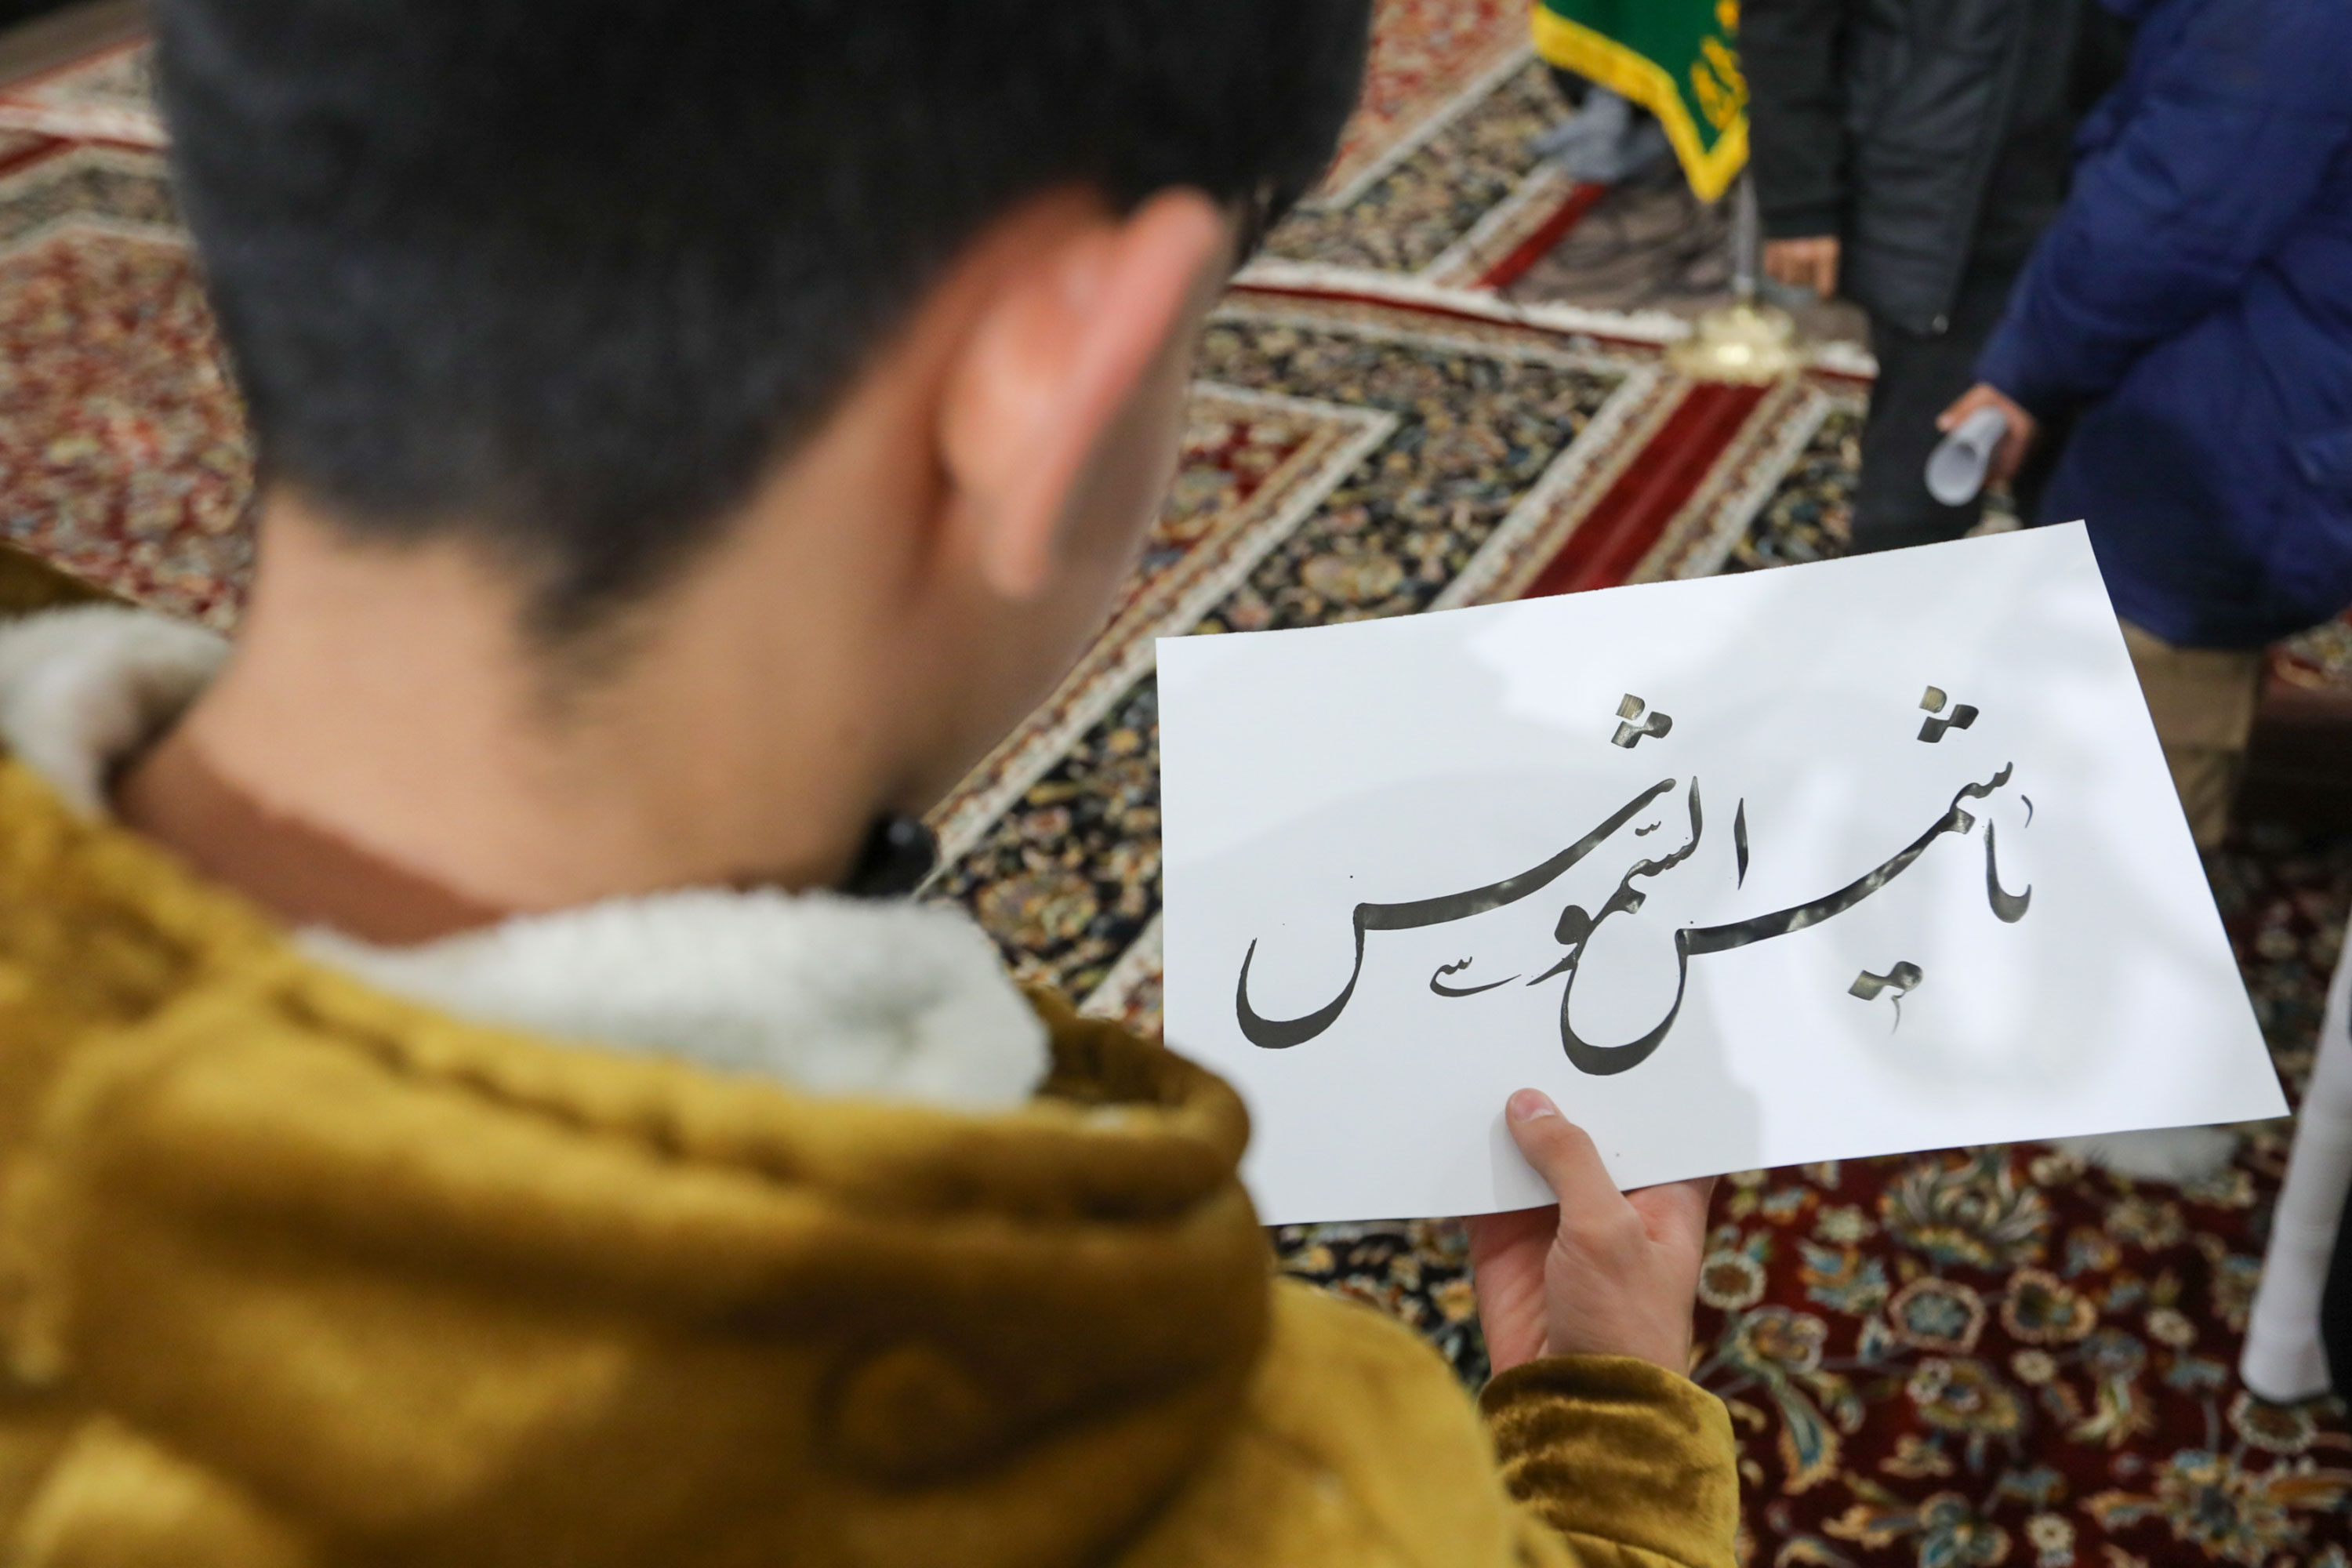 یا شمس الشّموس